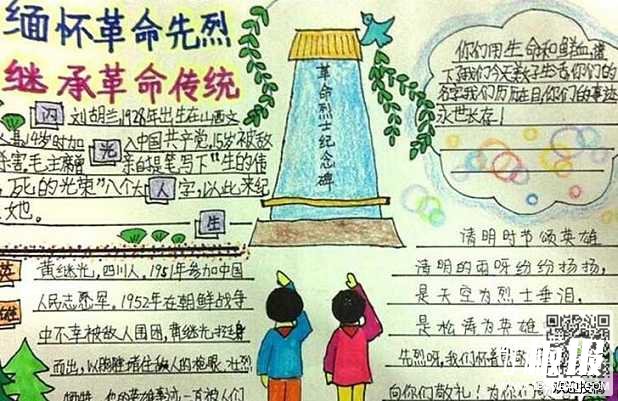 缅怀革命先烈
继承革命传统
闪
光
人
生
刘胡兰,1928年出生在山西文
县,14岁时加入中国共产党,15岁被敌
杀害,毛主席曾亲自提笔写下"生的伟
死的光荣"八个大字,以此来纪
她。
黄继光,四川人,1951年参加中国
人民志愿军。1952年在朝鲜战争
中不幸被敌人围困,黄继光挺身
而出,以胸膛堵住敌人的枪眼,壮烈
牺牲,他的英雄事迹一直被人们
革命烈士纪念碑
你们用生命和鲜血,播
下我们今天美好生活,你们的
名字我们历历在目,你们的事迹
永世长存!
清明时节颂英雄
清明的雨呀纷纷扬扬,
是天空为烈士垂泪,
是松涛为英雄
先烈呀,我们怀着
向你们敬礼!为你们